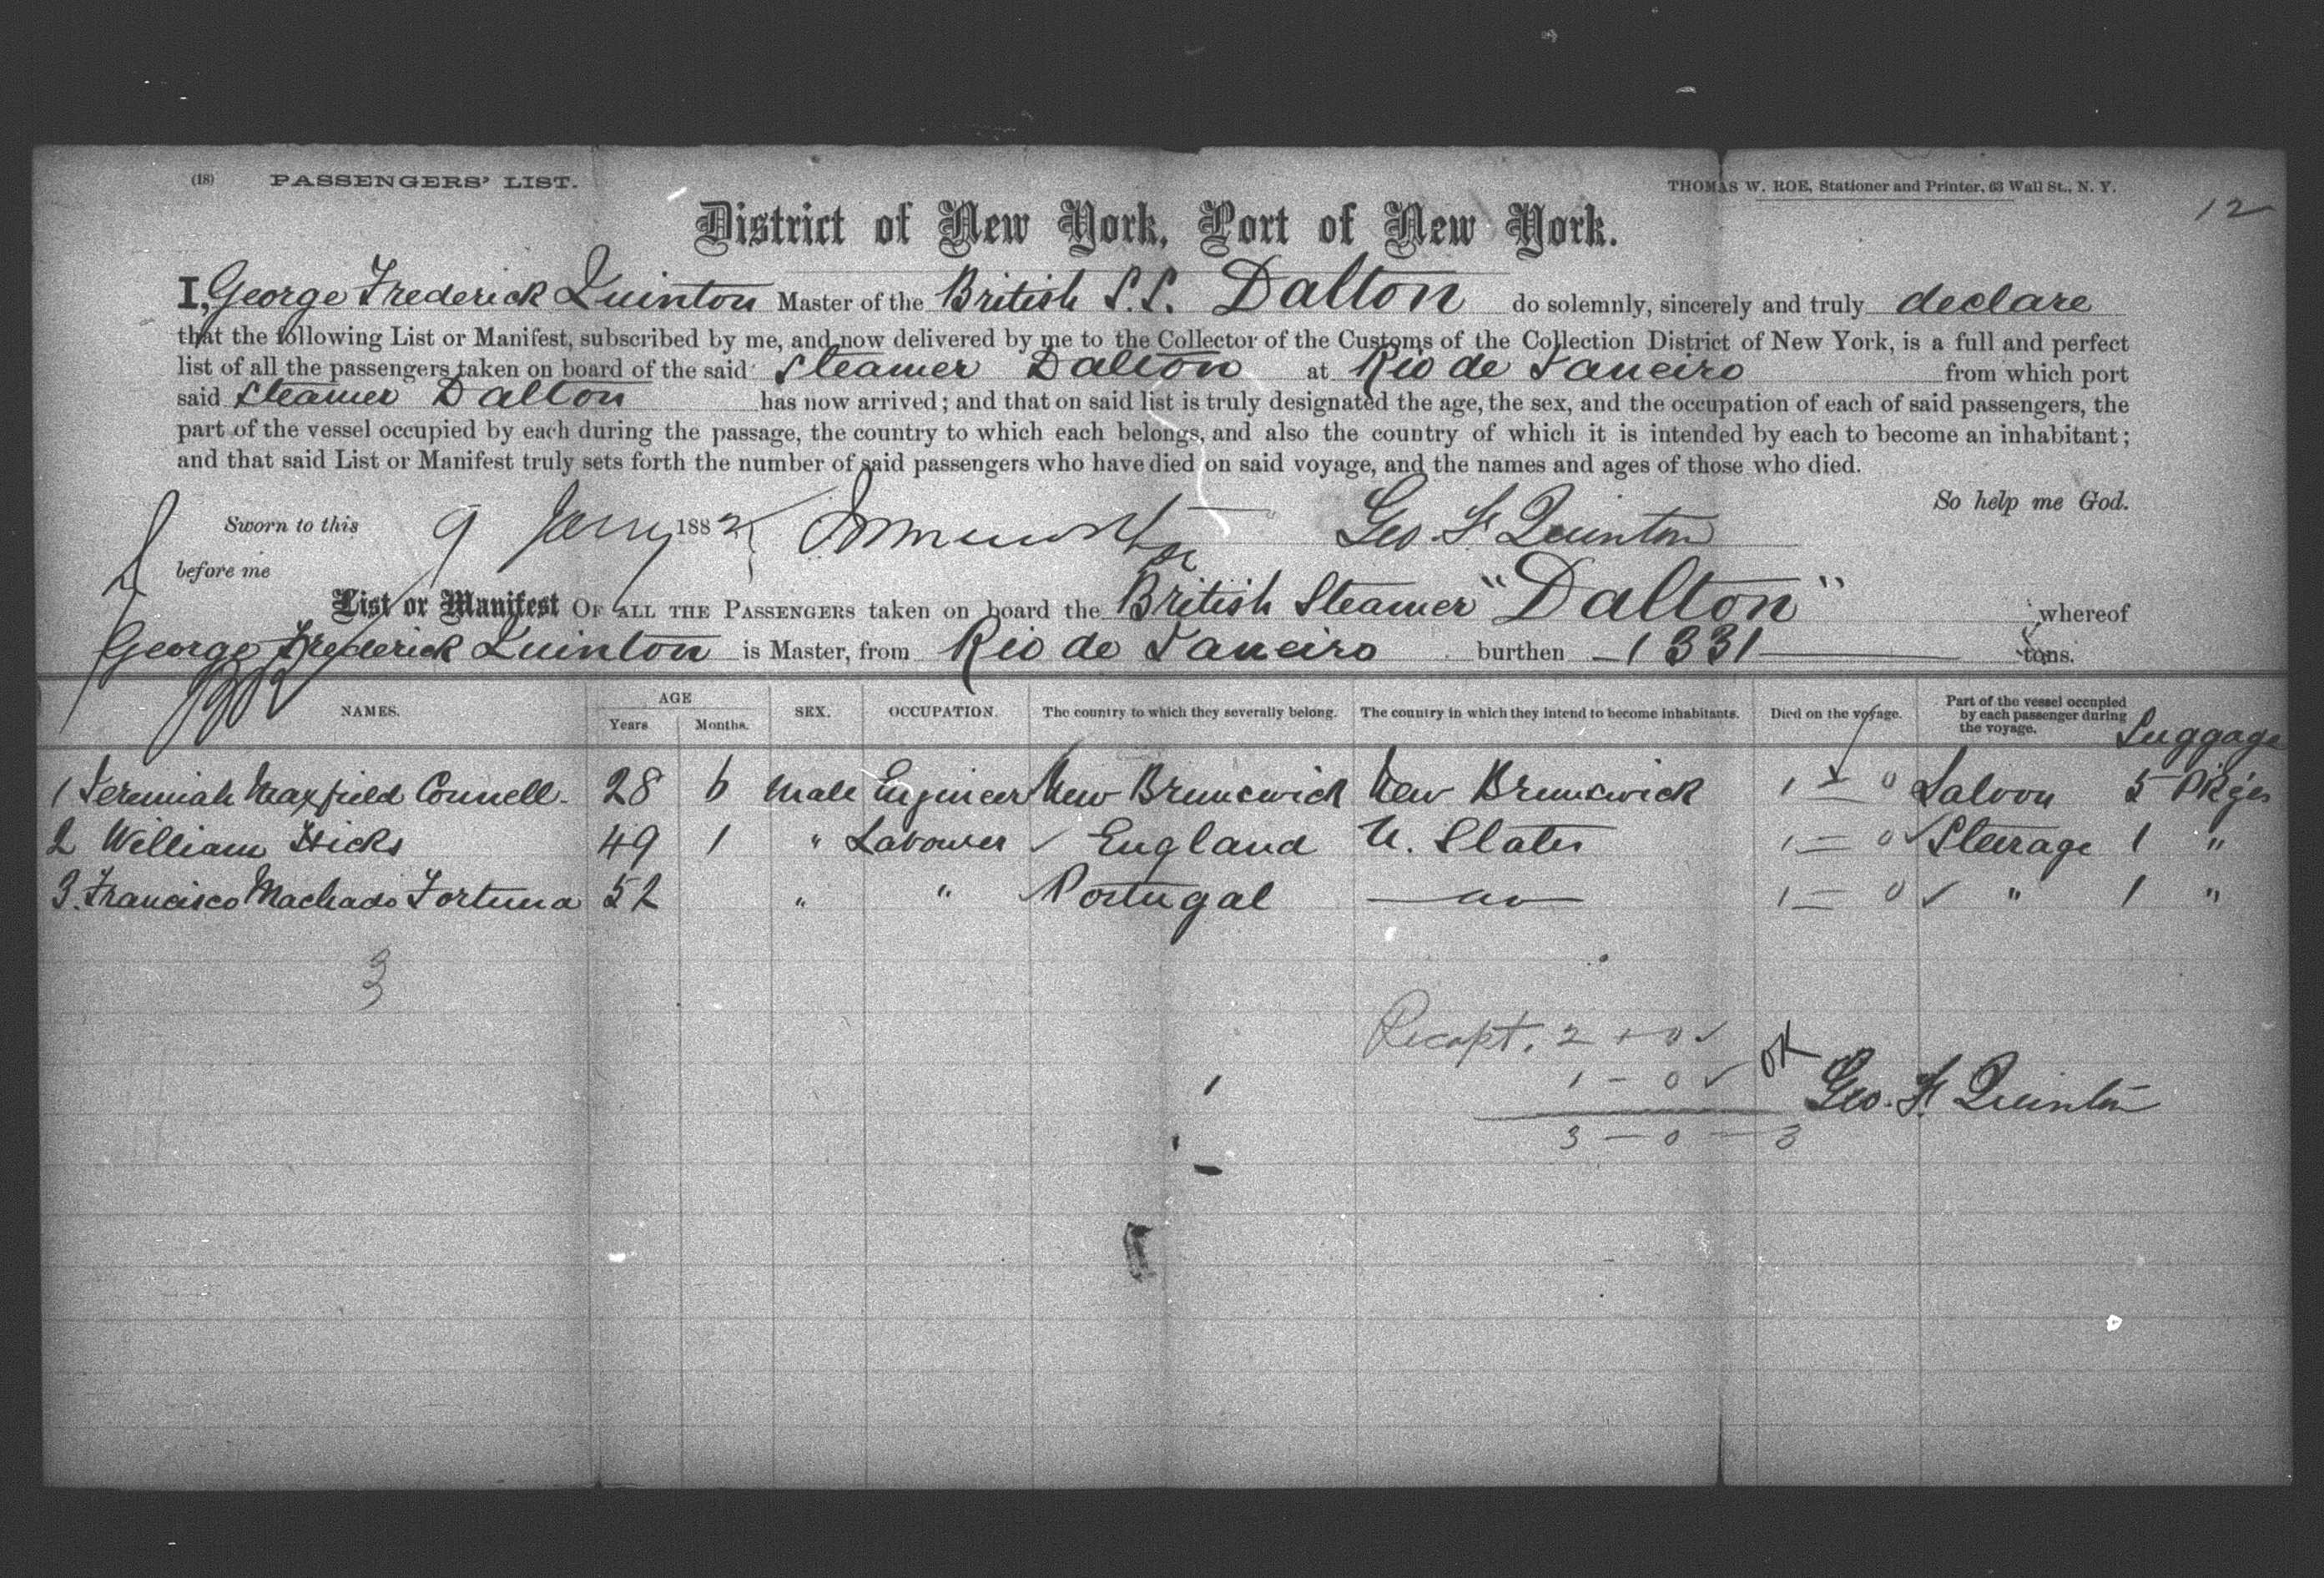 (18) PASSENGERS' LIST. THOMAS W. ROE, Stationer and Printer, 63 Wall St., N. Y.
12
District of New York, Port of New York.
I, George Frederick Quinton Master of the British S.S. Dalton do solemnly, sincerely and truly declare
that the following List or Manifest, subscribed by me, and now delivered by me to the Collector of the Customs of the Collection District of New York, is a full and perfect
list of all the passengers taken on board of the said Steamer Dalton at Rio de Janeiro from which port
said Steamer Dalton has now arrived; and that on said list is truly designated the age, the sex, and the occupation of each of said passengers, the
part of the vessel occupied by each during the passage, the country to which each belongs, and also the country of which it is intended by each to become an inhabitant;
and that said List or Manifest truly sets forth the number of said passengers who have died on said voyage, and the names and ages of those who died.
So help me God.
Sworn to this 9 Jany 1882 Geo. F. Quinton
before me
List or Manifest OF ALL THE PASSENGERS taken on board the British Steamer "Dalton" whereof
George Frederick Quinton is Master, from Rio de Janeiro burthen 1331 tons.
NAMES. AGE Years Months. SEX. OCCUPATION. The country to which they severally belong. The country in which they intend to become inhabitants. Died on the voyage. Part of the vessel occupied by each passenger during the voyage. Luggage
1 Jeremiah Maxfield Connell 28 6 Male Engineer New Brunswick New Brunswick 1 - 0 Saloon 5 Pkges
2 William Hicks 49 1 " Labourer England U. States 1 - 0 Steerage 1 "
3. Francisco Machado Fortuna 52 " " Portugal do 1 - 0 " 1 "
3
Recapt. 2 + 0
1 - 0 OK
Geo. F. Quinton
3 - 0 - 3